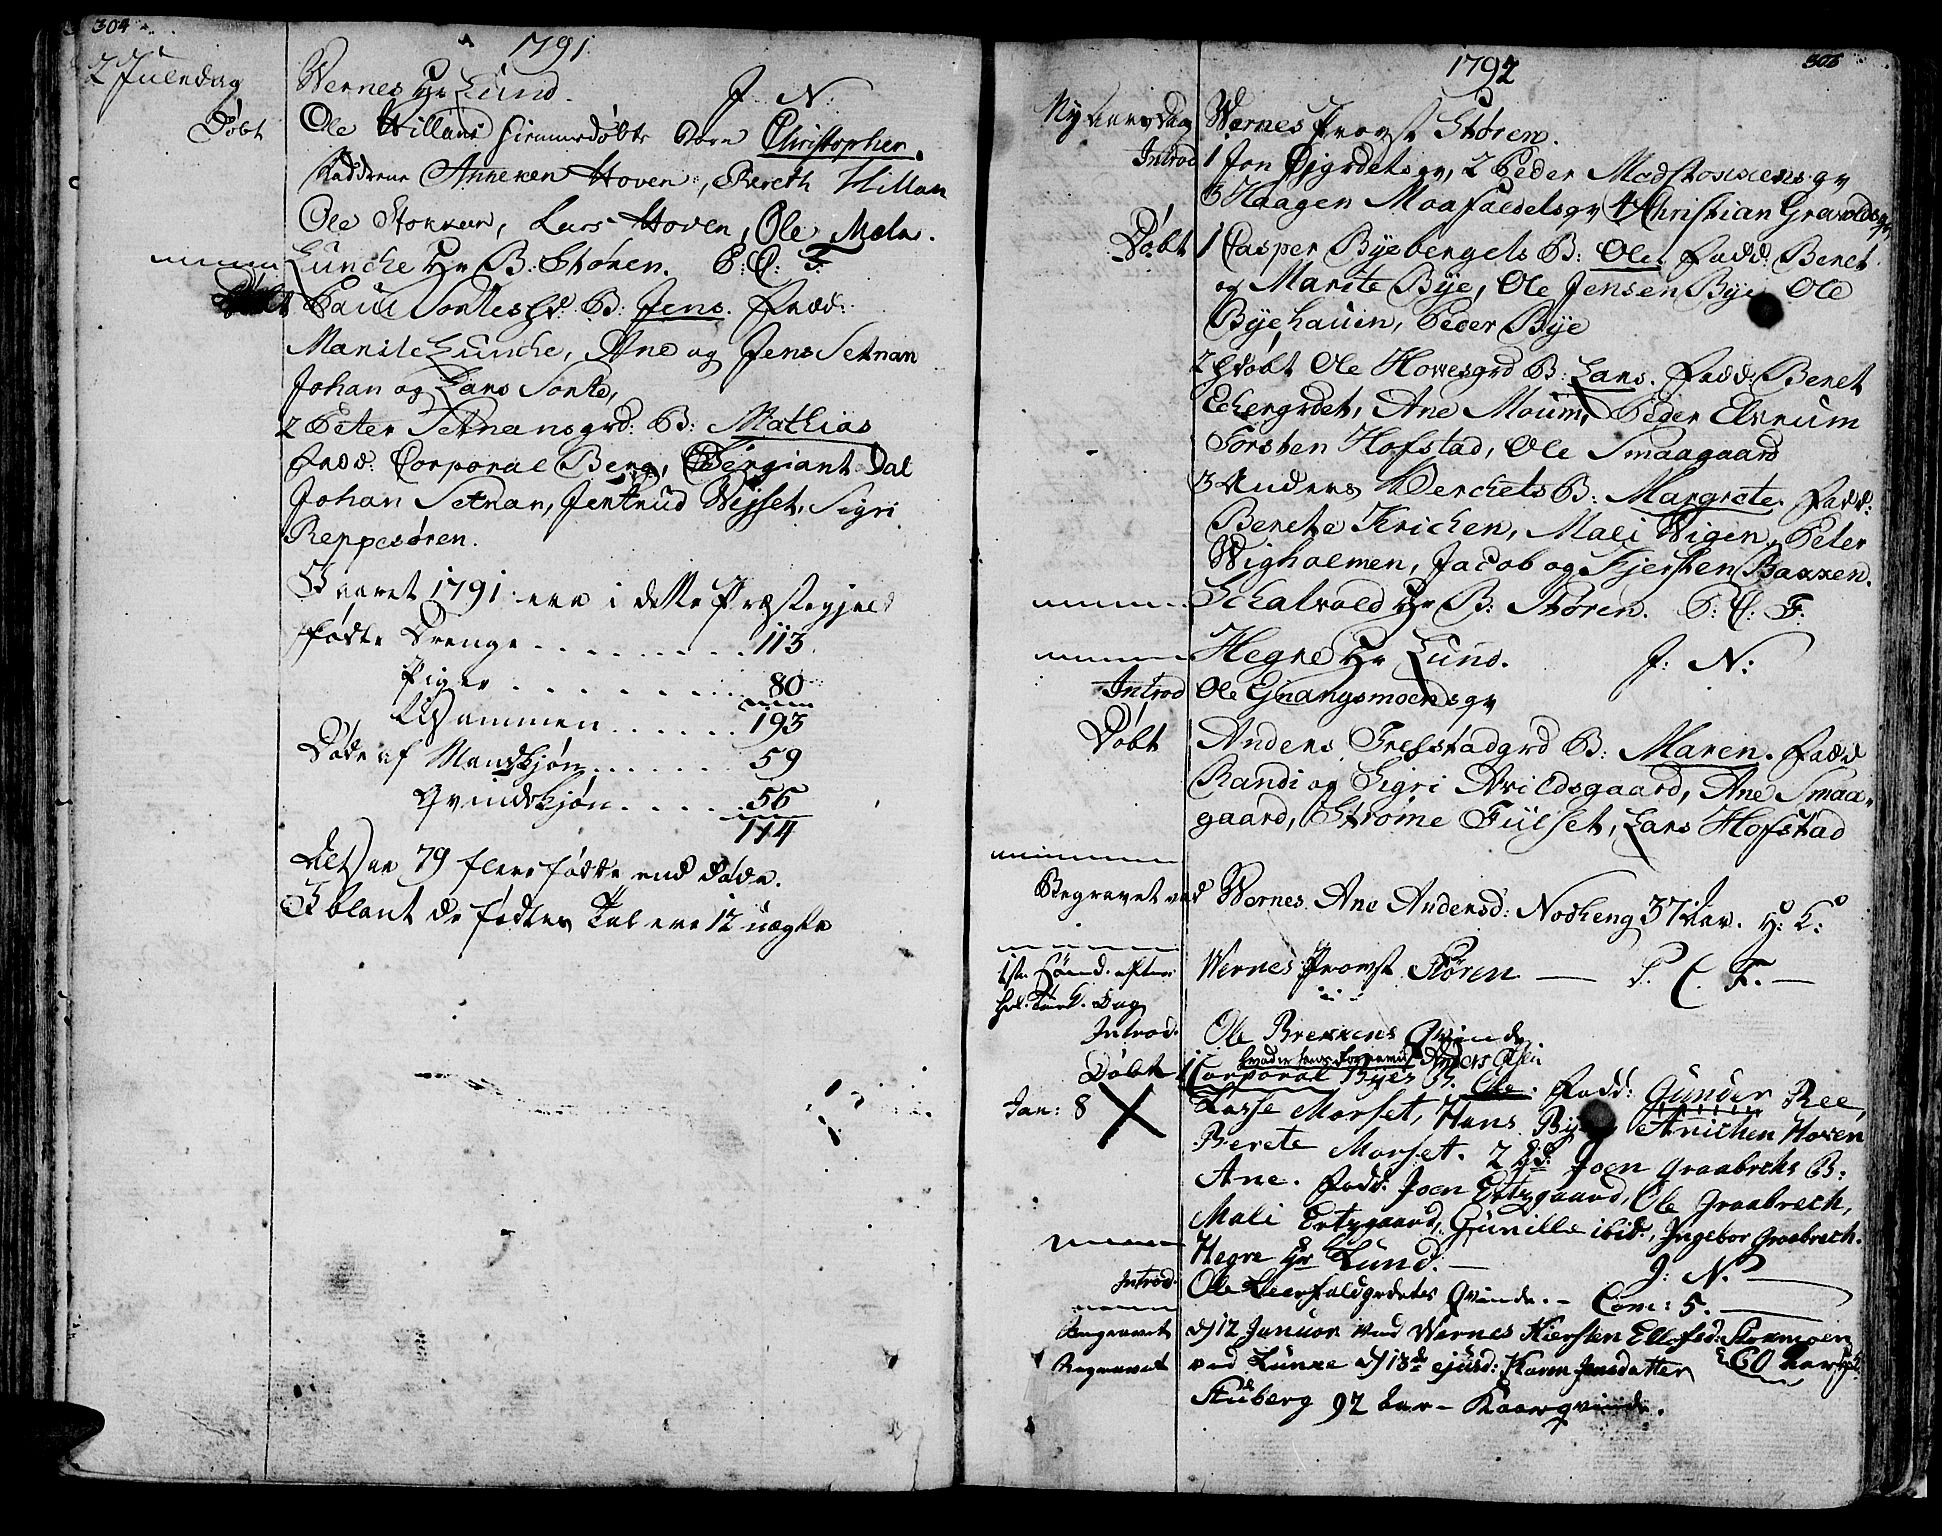 304
1791
2 Juledag Wernes Hr Lund. J. N:
Døbt Ole Hillans hiemmedøbte Barn Christopher.
Faddrene Anneken Hoven, Bereth Hillan
Ole Stokkan, Lars Hoven, Ole Mæla.
Luncke Hr B: Støren. P: C: F:
Døbt Paul Sonkes B: Jens. Fadd:
Marite Luncke, Ane og Jens Setnan
Johan og Lars Sonke,
2 Peter Setnansgrd: B: Mathias
Fadd: Corporal Berg, Sergiant Dal
Johan Setnan, Jertrud Wisset, Sigri
Reppesøren.
I aaret 1791 ere i dette Præstegjeld
fødte Drenge . . . . . . . . 113
Piger . . . . . . . . 80
Tilsammen . . . . . . 193
Døde af Mandkjøn . . . . . . 59
Qvindekjøn . . . . . 55
114
Altsaa 79 flere fødte end døde.
I blant de fødtes Tal ere 12 uægte
305
1792
Nytaarsdag Wernes Provst Støren.
Introd 1 Jon Øjgrdetsqv, 2 Peder Madstokkens qv
3 Haagen Moafaldetsqv 4 Christian Gravoldsqv
Døbt 1 Casper Byebergets B: Ole. Fadd: Beret
og Marite Bye, Ole Jensen Bye Ole
Byehauen, Peder Bye
2 hdøbt Ole Hovesgrd B: Lars. Fadd: Beret
Echergrdet, Ane Moum, Peder Elvrum
Torsten Hofstad, Ole Smaagaard
3 Anders Werchets B: Margrete. Fadd:
Berete Krichen, Mali Wigen, Peter
Wigholmen, Jacob og Kjersten Bakken.
Schatvold Hr B: Støren. P: C: F:
Hegre Hr Lund. J: N:
Introd Ole Gjnangsmoensqv
Døbt Anders Trefstadgrd B: Maren. Fadd
Randi og Sigri Avildsgaard, Ane Smaa-
gaard, Strøme Fulset, Lars Hofstad
Begravet ved Wernes Ane Andersd: Nocheng 37 Aar. H: K:
1ste Sønd. efter Wernes Provst Støren — P. C. F. —
hel. Tre K. Dag
Introd. Ole Brekkens Qvinde
Anders Olsen
Døbt 1 Corporal Byes B. Ole. Fadd: Gunder Ree,
Jan: 8 Lasse Morset, Hans Bye, Anichen Hoven
Berete Morset. 2 Joen Graabreks B:
Ane. Fadd: Joen Ertzgaard, Ole Graabrech,
Mali Ertzgaard, Gunille ibid., Ingebor Graabrech.
Hegre Hr Lund. — J: N: —
Introd. Ole Leerfaldgrdetes Qvinde. — Com: 5. —
Begravet d 12 Januar ved Wernes Kiersten Ellefsd: Stokmoen
60 Aar
Begravet ved Lunke d 13de ejusd: Karen Jensdatter
Stuberg 92 Aar —